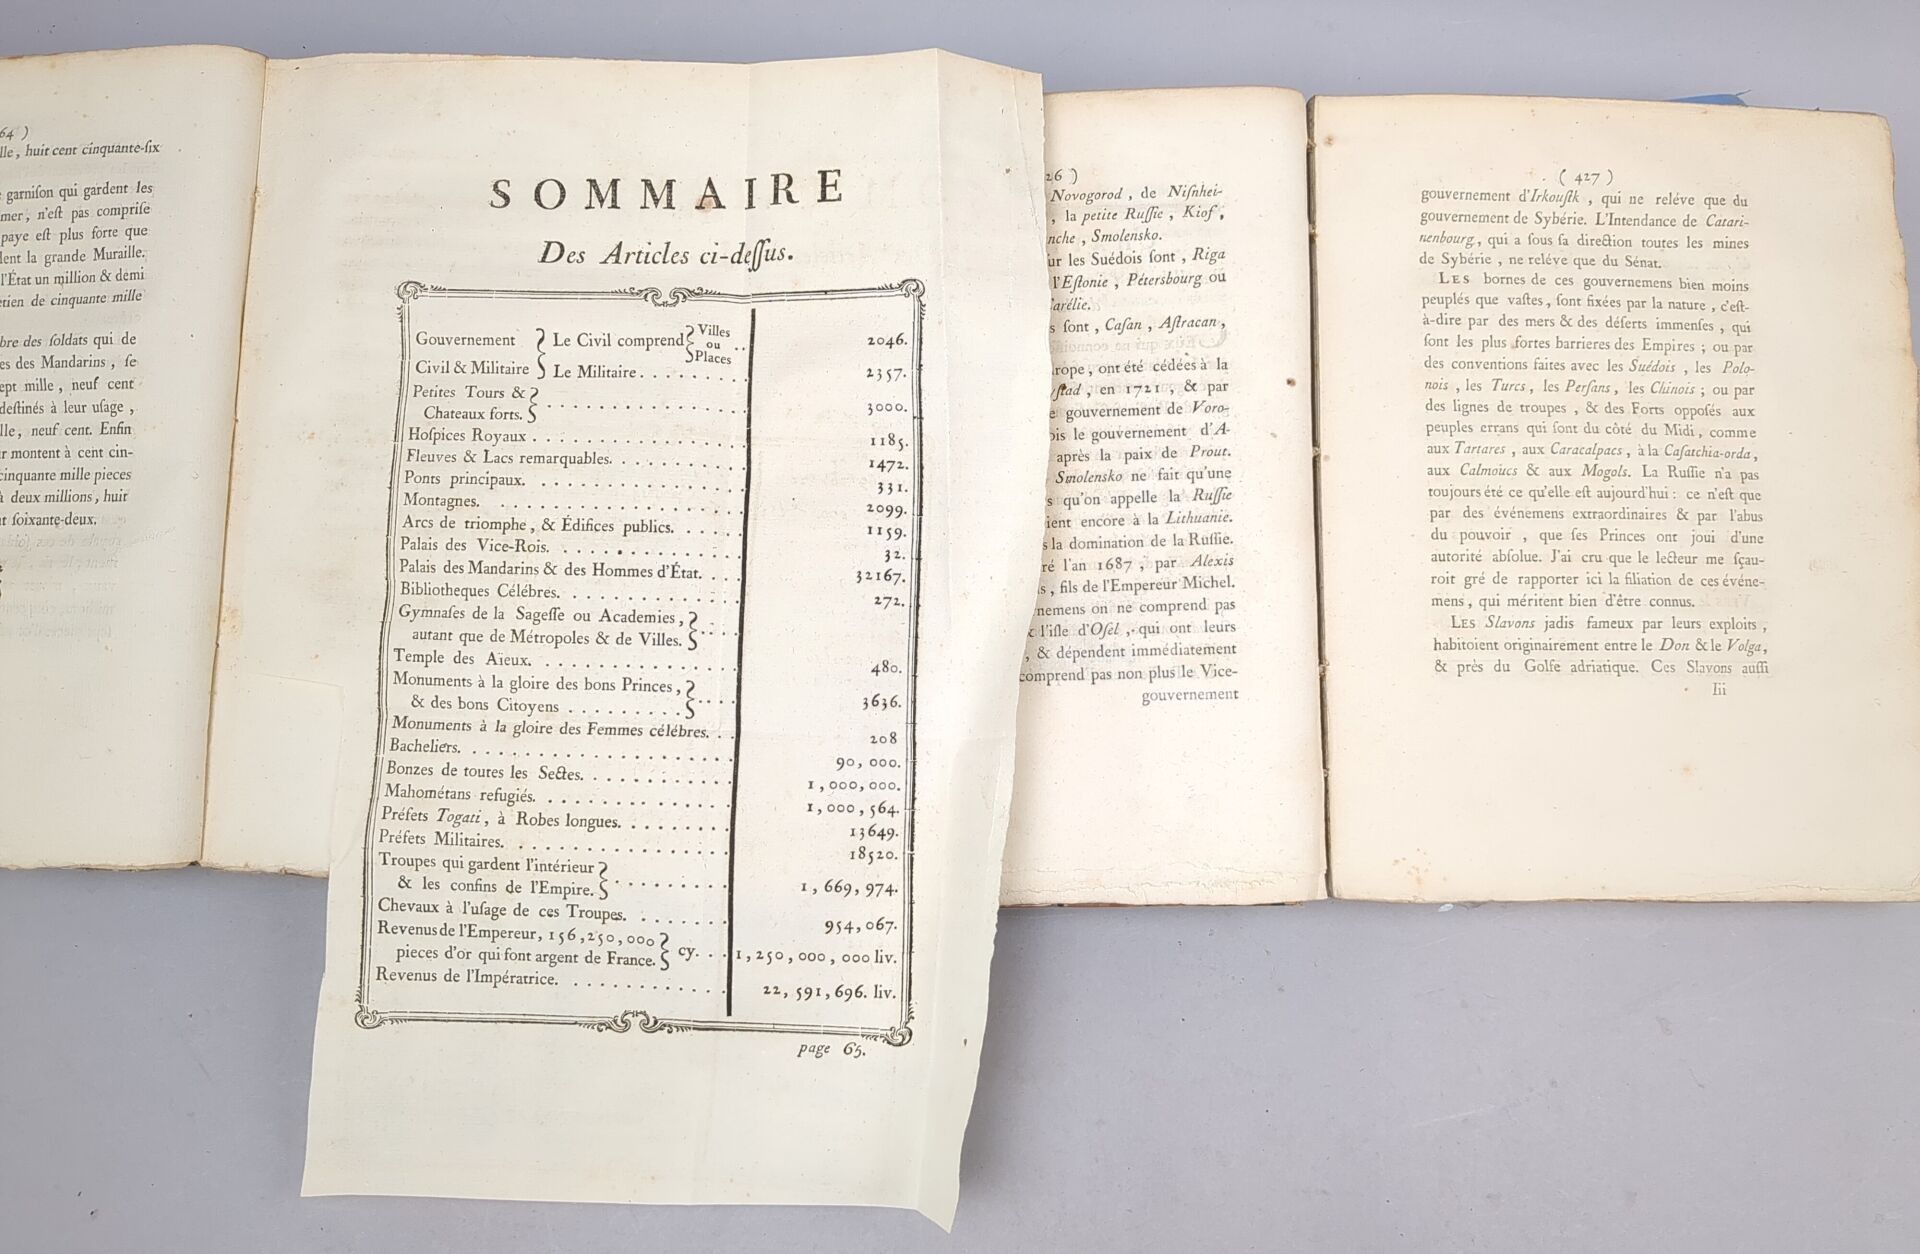 64 )
lle, huit cent cinquante-ſix
garniſon qui gardent les
mer, n'eſt pas compriſe
paye eſt plus forte que
dent la grande Muraille.
l'État un million & demi
etien de cinquante mille
bre des ſoldats qui de
es des Mandarins, ſe
ept mille, neuf cent
deſtinés à leur uſage,
lle, neuf cent. Enfin
r montent à cent cin-
cinquante mille pieces
à deux millions, huit
t ſoixante-deux.
SOMMAIRE
Des Articles ci-deſſus.
Gouvernement Civil & Militaire } Le Civil comprend { Villes ou Places .. 2046.
Le Militaire. . . . . . . . . 2357.
Petites Tours &
Chateaux forts. } . . . . . . . . . 3000.
Hoſpices Royaux . . . . . . . . . 1185.
Fleuves & Lacs remarquables. . . . . . . . 1472.
Ponts principaux. . . . . . . . . 331.
Montagnes. . . . . . . . . 2099.
Arcs de triomphe, & Édifices publics. . . . . 1159.
Palais des Vice-Rois. . . . . . . . . 32.
Palais des Mandarins & des Hommes d'État. . . . 32167.
Bibliotheques Célébres. . . . . . . . . 272.
Gymnaſes de la Sageſſe ou Academies,
autant que de Métropoles & de Villes. } . . . .
Temple des Aïeux. . . . . . . . . 480.
Monuments à la gloire des bons Princes,
& des bons Citoyens . . . . . . . . } . . . . 3636.
Monuments à la gloire des Femmes célébres. . . 208
Bacheliers. . . . . . . . . 90,000.
Bonzes de toutes les Sectes. . . . . . . . 1,000,000.
Mahométans refugiés. . . . . . . . . 1,000,564.
Préfets Togati, à Robes longues. . . . . . . . 13649.
Préfets Militaires. . . . . . . . . 18520.
Troupes qui gardent l'intérieur
& les confins de l'Empire. } . . . . . . . . 1,669,974.
Chevaux à l'uſage de ces Troupes. . . . . . . 954,067.
Revenus de l'Empereur, 156,250,000
pieces d'or qui font argent de France. } cy. . . 1,250,000,000 liv.
Revenus de l'Impératrice. . . . . . . . . 22,591,696. liv.
page 65.
26 )
Novogorod, de Niſnhei-
, la petite Ruſſie, Kiof,
nche, Smolensko.
ur les Suédois ſont, Riga
l'Eſtonie, Pétersbourg ou
arélie.
s ſont, Caſan, Aſtracan,
rope, ont été cédées à la
ſtad, en 1721, & par
e gouvernement de Voro-
ois le gouvernement d'A-
après la paix de Prout.
Smolensko ne fait qu'une
s qu'on appelle la Ruſſie
ient encore à la Lithuanie.
s la domination de la Ruſſie.
ré l'an 1687, par Alexis
s, fils de l'Empereur Michel.
nemens on ne comprend pas
l'iſle d'Oſel, qui ont leurs
, & dépendent immédiatement
comprend pas non plus le Vice-
gouvernement
( 427 )
gouvernement d'Irkouſtk, qui ne reléve que du
gouvernement de Sybérie. L'Intendance de Catari-
nenbourg, qui a ſous ſa direction toutes les mines
de Sybérie, ne reléve que du Sénat.
LES bornes de ces gouvernemens bien moins
peuplés que vaſtes, ſont fixées par la nature, c'eſt-
à-dire par des mers & des déſerts immenſes, qui
ſont les plus fortes barrieres des Empires; ou par
des conventions faites avec les Suédois, les Polo-
nois, les Turcs, les Perſans, les Chinois; ou par
des lignes de troupes, & des Forts oppoſés aux
peuples errans qui ſont du côté du Midi, comme
aux Tartares, aux Caracalpacs, à la Caſatchia-orda,
aux Calmoucs & aux Mogols. La Ruſſie n'a pas
toujours été ce qu'elle eſt aujourd'hui: ce n'eſt que
par des événemens extraordinaires & par l'abus
du pouvoir, que ſes Princes ont joui d'une
autorité abſolue. J'ai cru que le lecteur me ſçau-
roit gré de rapporter ici la filiation de ces événe-
mens, qui méritent bien d'être connus.
LES Slavons jadis fameux par leurs exploits,
habitoient originairement entre le Don & le Volga,
& près du Golfe adriatique. Ces Slavons auſſi
Iii